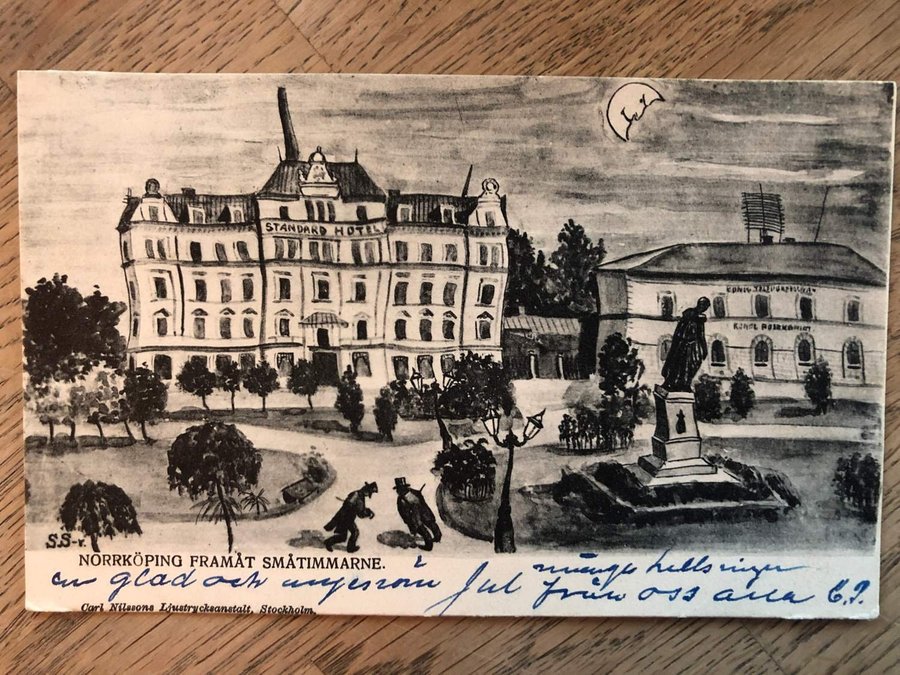 STANDARD HOTEL
KONGL
KONGL
S.S-r.
NORRKÖPING FRAMÅT SMÅTIMMARNE.
en glad och angenäm Jul
många hellsninger
från oss alla
Carl Nilssons Ljustrycksanstalt, Stockholm.